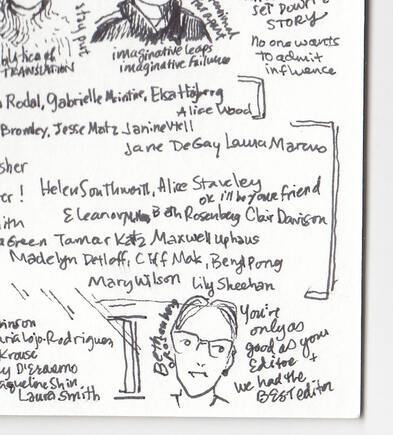 SET DOWN a
STORY
No one wants
to admit
influence
stay put
TRANSLATION
imaginative leaps
imaginative failures
Rodal, Gabrielle McIntire, Elsa Högberg
Alice Wood
Bromley, Jesse Matz Janine Utell
Jane DeGay Laura Marcus
sher
er! Helen Southworth, Alice Staveley
ok i'll be your friend
ith Eleanor Beth Rosenberg Clair Davison
Green Tamar Katz Maxwell Uphaus
Madelyn Detloff, Cliff Mak, Beryl Pong
Mary Wilson Lily Sheehan
inson
aria Lojo-Rodriguez
Krause
y D'Erasmo
aqueline Shin,
Laura Smith
Beth Rosenberg
You're
only as
good as your
Editor +
we had the
BEST editor